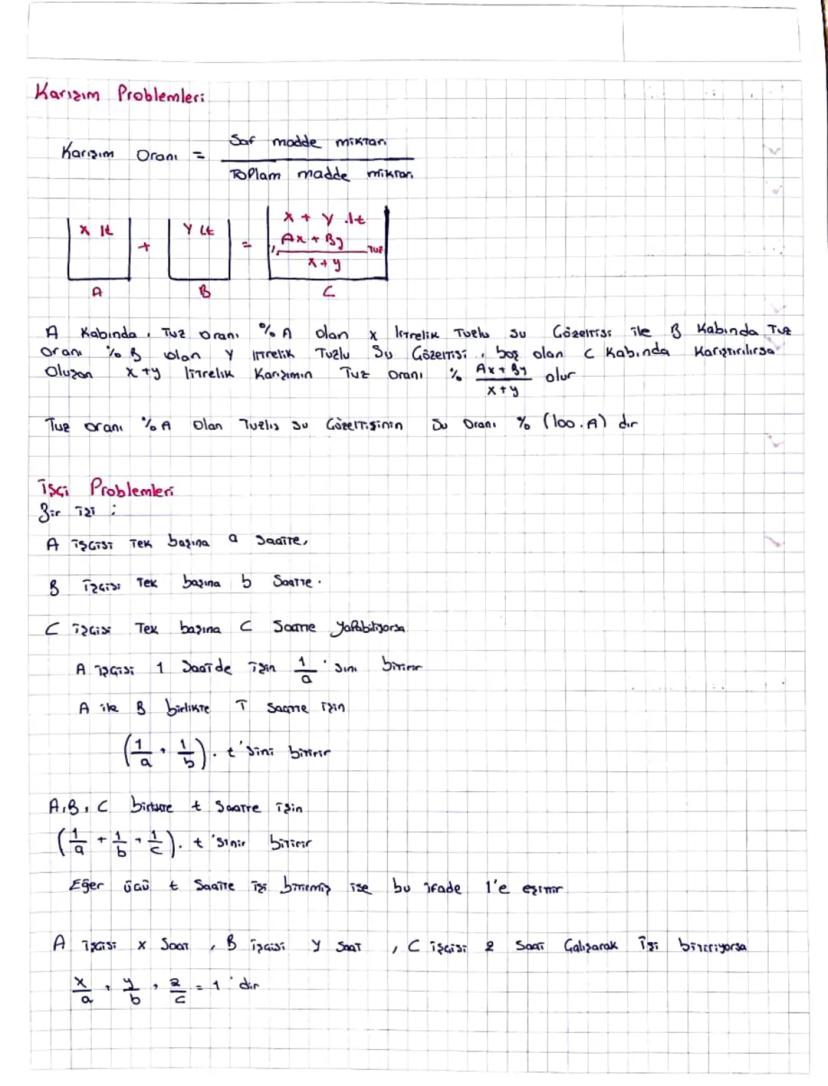 Karışım Problemleri
Karışım Oranı = Saf madde miktarı / Toplam madde miktarı
x lt + y lt = x + y lt
% Ax + By / x + y Tuz
A B C
A Kabında, Tuz oranı % A olan x litrelik Tuzlu su Gözeltisi ile B Kabında Tuz
oranı % B olan y litrelik Tuzlu Su Gözeltisi, boş olan C Kabında Karıştırılırsa
Oluşan x + y litrelik Karışımın Tuz Oranı % Ax + By / x + y olur
Tuz oranı % A Olan Tuzlu su Gözeltisinin Su Oranı % (100 . A) dır
İşçi Problemleri
Bir işi :
A işçisi Tek başına a Saatte,
B işçisi Tek başına b Saatte.
C işçisi Tek başına C Saatte Yapabiliyorsa
A işçisi 1 Saatde işin 1/a 'sını bitirir
A ile B birlikte T Saatte işin
(1/a + 1/b) . t'sini bitirir
A, B, C birlikte t Saatte işin
(1/a + 1/b + 1/c) . t'sinir bitirir
Eğer üçü t Saatte işi bitirmiş ise bu ifade 1'e eşittir
A işçisi x Saat, B işçisi y Saat, C işçisi z Saat Çalışarak İşi bitiriyorsa
x/a + y/b + z/c = 1 'dir